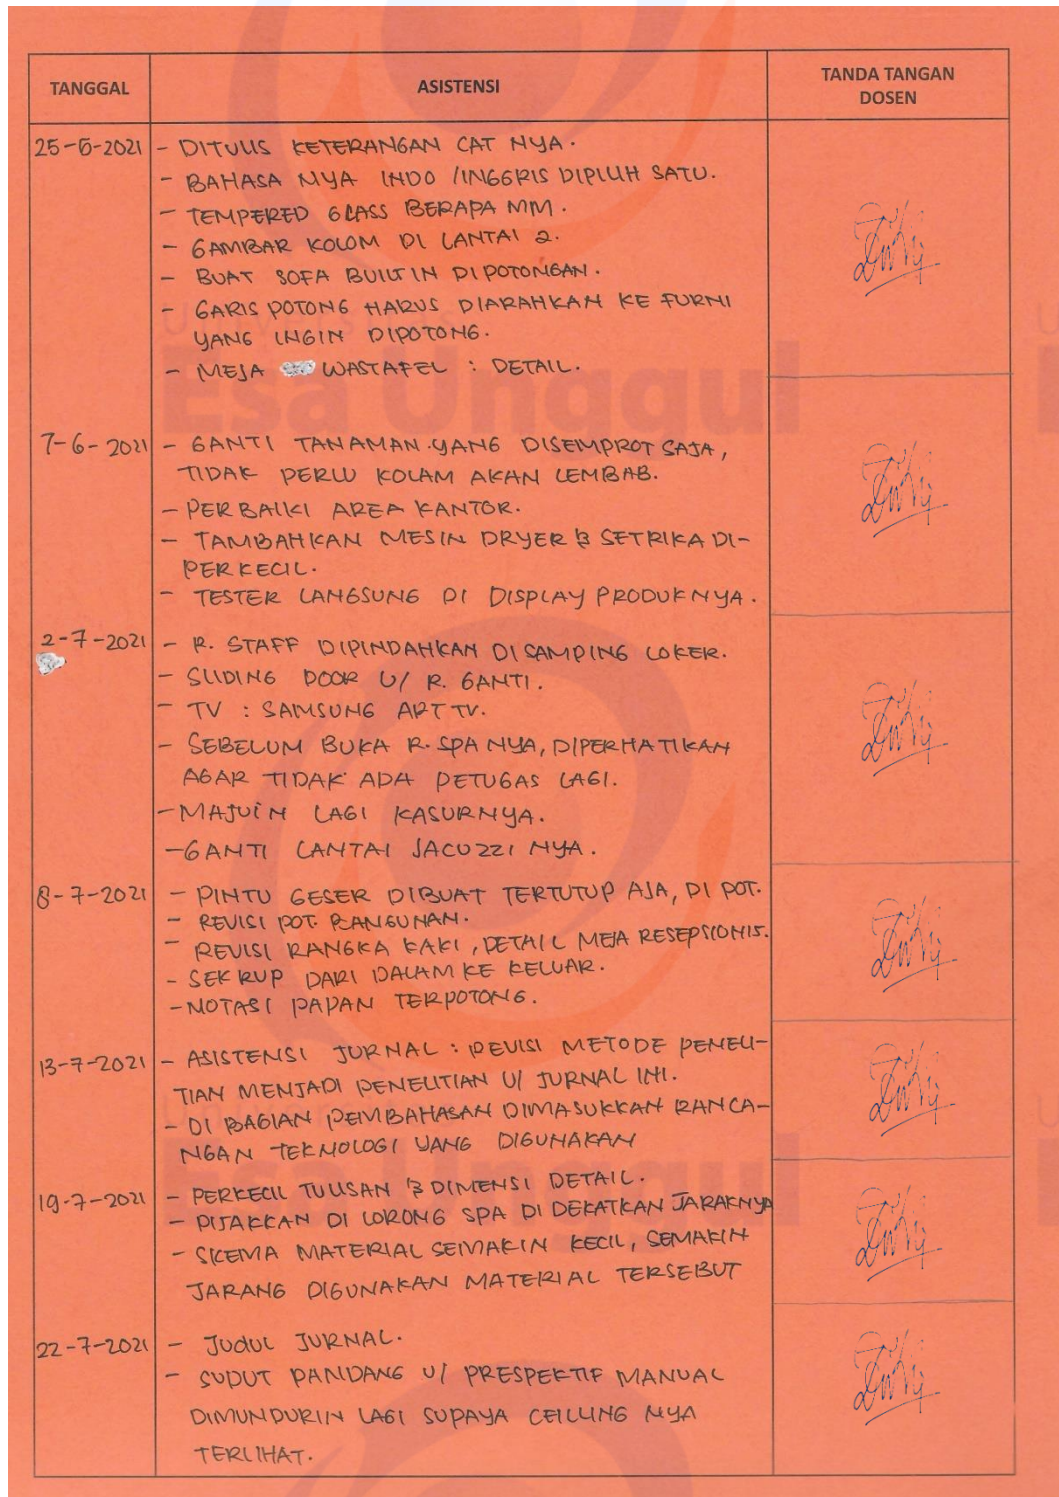 TANGGAL
ASISTENSI
TANDA TANGAN
DOSEN
25-5-2021
- DITULIS KETERANGAN CAT NYA.
- BAHASA NYA INDO /INGGRIS DIPILIH SATU.
- TEMPERED GLASS BERAPA MM.
- GAMBAR KOLOM DI LANTAI 2.
- BUAT SOFA BUILT IN DI POTONGAN.
- GARIS POTONG HARUS DIARAHKAN KE FURNI
YANG INGIN DIPOTONG.
- MEJA WASTAFEL : DETAIL.
7-6-2021
- GANTI TANAMAN YANG DISEMPROT SAJA,
TIDAK PERLU KOLAM AKAN LEMBAB.
- PERBAIKI AREA KANTOR.
- TAMBAHKAN MESIN DRYER & SETRIKA DI-
PERKECIL.
- TESTER LANGSUNG DI DISPLAY PRODUKNYA.
2-7-2021
- R. STAFF DIPINDAHKAN DI SAMPING LOKER.
- SLIDING DOOR U/ R. GANTI.
- TV : SAMSUNG ART TV.
- SEBELUM BUKA R. SPA NYA, DIPERHATIKAN
AGAR TIDAK ADA PETUGAS LAGI.
- MAJUIN LAGI KASURNYA.
- GANTI LANTAI JACUZZI NYA.
8-7-2021
- PINTU GESER DIBUAT TERTUTUP AJA, DI POT.
- REVISI POT. BANGUNAN.
- REVISI RANGKA KAKI, DETAIL MEJA RESEPSIONIS.
- SEKRUP DARI DALAM KE KELUAR.
- NOTASI PAPAN TERPOTONG.
13-7-2021
- ASISTENSI JURNAL : REVISI METODE PENELI-
TIAN MENJADI PENELITIAN U/ JURNAL INI.
- DI BAGIAN PEMBAHASAN DIMASUKKAN RANCA-
NGAN TEKNOLOGI YANG DIGUNAKAN
19-7-2021
- PERKECIL TULISAN & DIMENSI DETAIL.
- PIJAKKAN DI LORONG SPA DI DEKATKAN JARAKNYA
- SKEMA MATERIAL SEMAKIN KECIL, SEMAKIN
JARANG DIGUNAKAN MATERIAL TERSEBUT
22-7-2021
- JUDUL JURNAL.
- SUDUT PANDANG U/ PRESPEKTIF MANUAL
DIMUNDURIN LAGI SUPAYA CEILLING NYA
TERLIHAT.
Esa Unggul
Esa Unggul